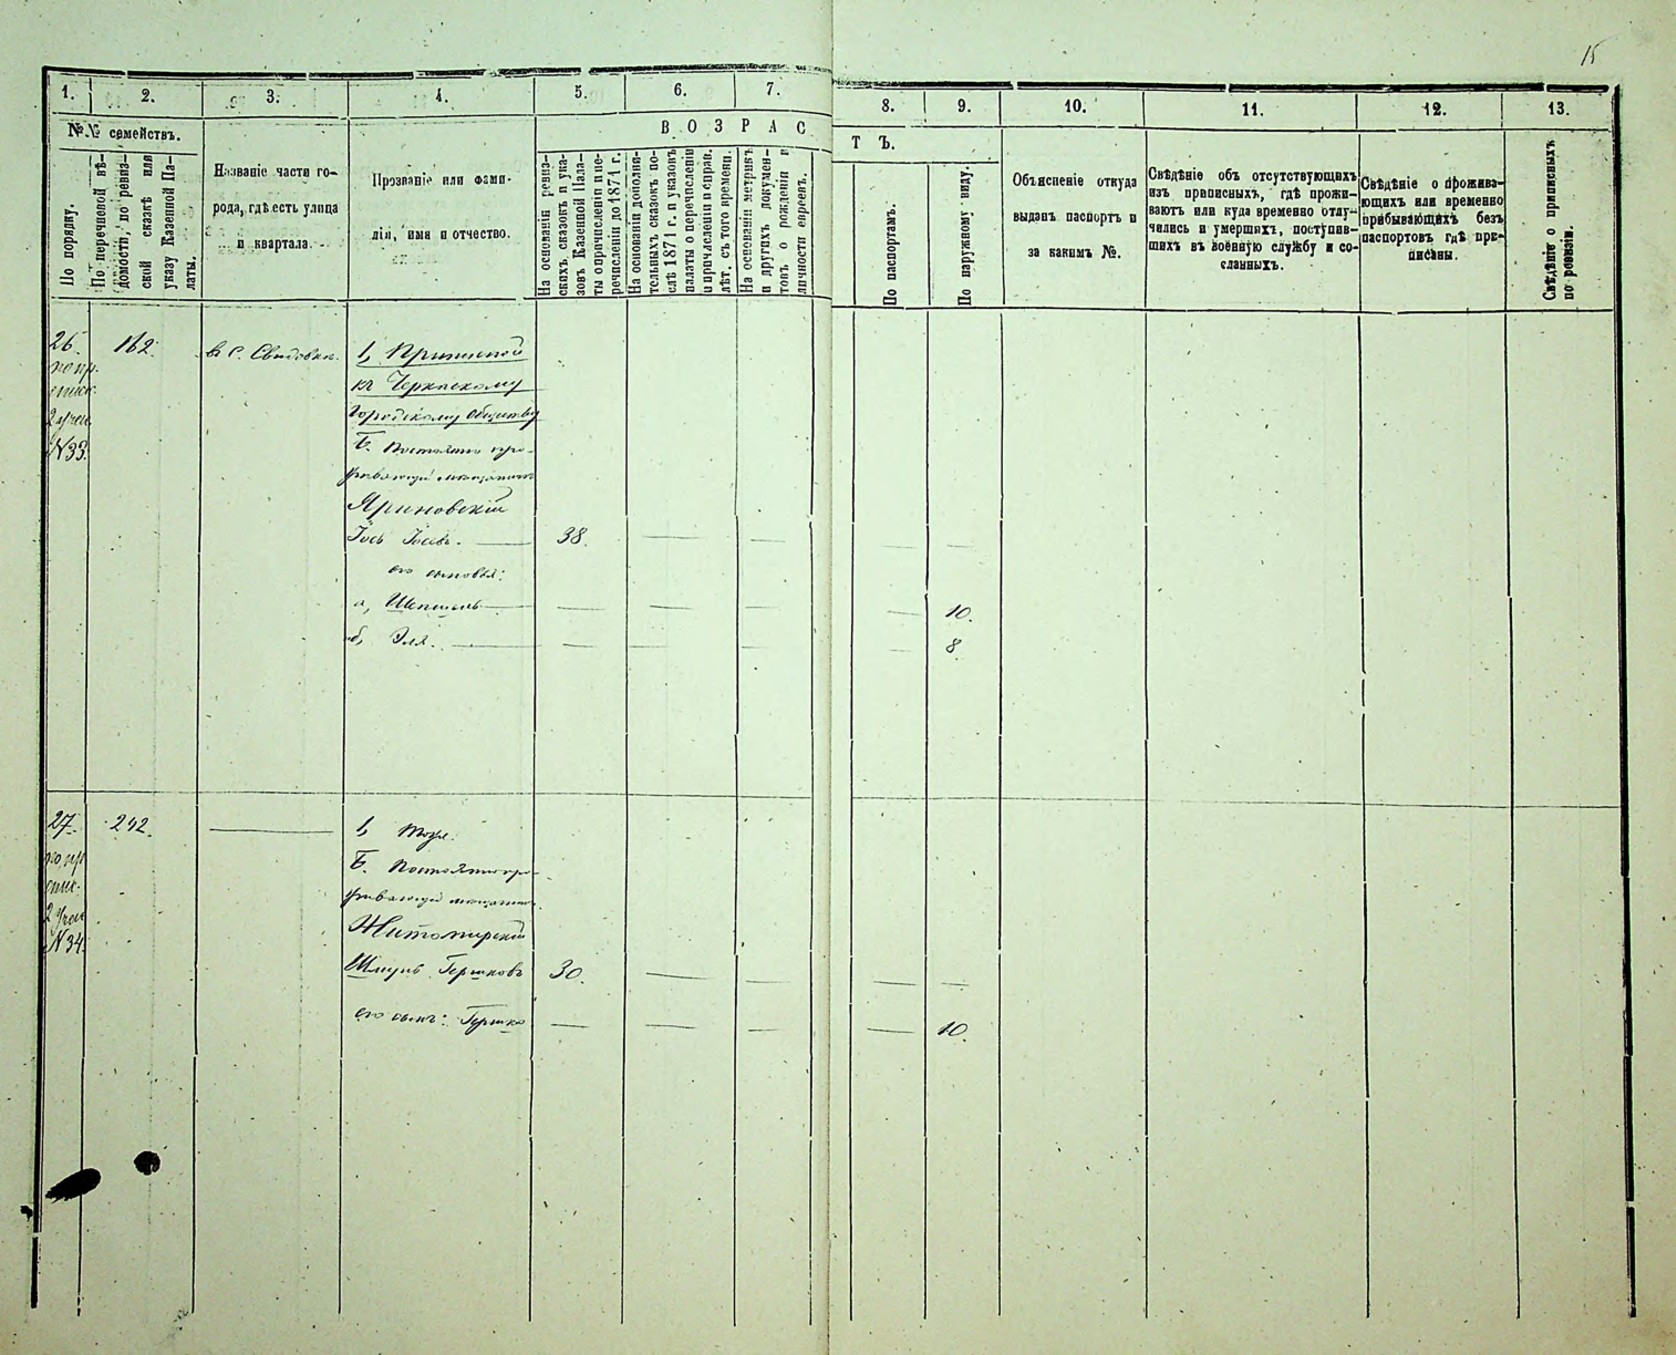 15
1. 2. 3. 4. 5. 6. 7. 8. 9. 10. 11. 12. 13.
№№ семействъ.
По порядку.
По перечневой вѣ-
домости, по ревиз-
ской сказкѣ или
указу Казенной Па-
латы.
Названіе части го-
рода, гдѣ есть улица
и квартала.
Прозваніе или фами-
лія, имя и отчество.
ВОЗРАСТЪ.
На основаніи ревиз-
скихъ сказокъ и ука-
зовъ Казенной Пала-
ты о причисленіи и пе-
речисленіи до 1871 г.
На основаніи дополни-
тельныхъ сказокъ по-
слѣ 1871 г. и указовъ
палаты о перечисленіи
и причисленіи и справ.
лѣт. съ того времени.
На основаніи метрикъ
и другихъ докумен-
товъ о рожденіи и
личности евреевъ.
По паспортамъ.
По наружному виду.
Объясненіе откуда
выданъ паспортъ и
за какимъ №.
Свѣдѣніе объ отсутствующихъ
изъ приписныхъ, гдѣ прожи-
ваютъ или куда временно отлу-
чились и умершихъ, поступив-
шихъ въ военную службу и со-
сланныхъ.
Свѣдѣніе о прожива-
ющихъ или временно
прибывающихъ безъ
паспортовъ гдѣ при-
писаны.
Свѣдѣніе о приписныхъ
по ревизіи.
26. 162. в с. Свидовки.
по пр.
спис.
2 Учас
№33.
Приписной
къ Черкаскому
Городскому Обществу
Б. Постоянно про-
живающій мещанинъ
Яриновскій
Іось Іосевъ. 38.
его сыновья:
а, Шепсель 10.
б, Эля. 8.
27. 242.
по пр
спис.
2 Учас
№34.
Тоже.
Б. Постоянно про-
живающій мещанин.
Житомирскій
Шмуль Гершковъ 30.
его сынъ: Гершко 10.